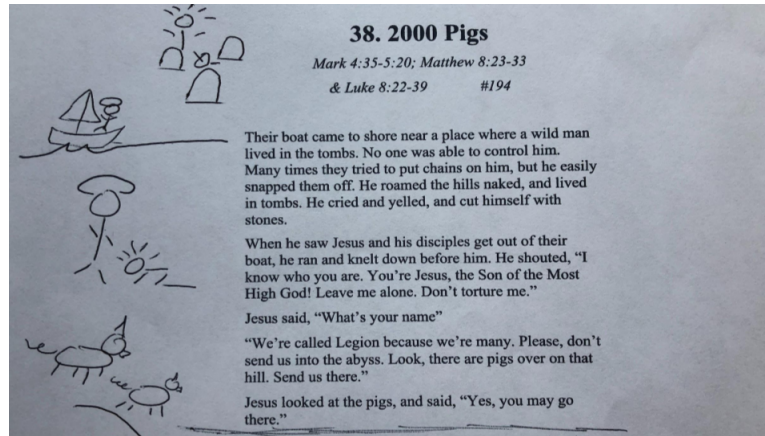 38. 2000 Pigs
Mark 4:35-5:20; Matthew 8:23-33
& Luke 8:22-39 #194
Their boat came to shore near a place where a wild man
lived in the tombs. No one was able to control him.
Many times they tried to put chains on him, but he easily
snapped them off. He roamed the hills naked, and lived
in tombs. He cried and yelled, and cut himself with
stones.
When he saw Jesus and his disciples get out of their
boat, he ran and knelt down before him. He shouted, “I
know who you are. You’re Jesus, the Son of the Most
High God! Leave me alone. Don’t torture me.”
Jesus said, “What’s your name”
“We’re called Legion because we’re many. Please, don’t
send us into the abyss. Look, there are pigs over on that
hill. Send us there.”
Jesus looked at the pigs, and said, “Yes, you may go
there.”